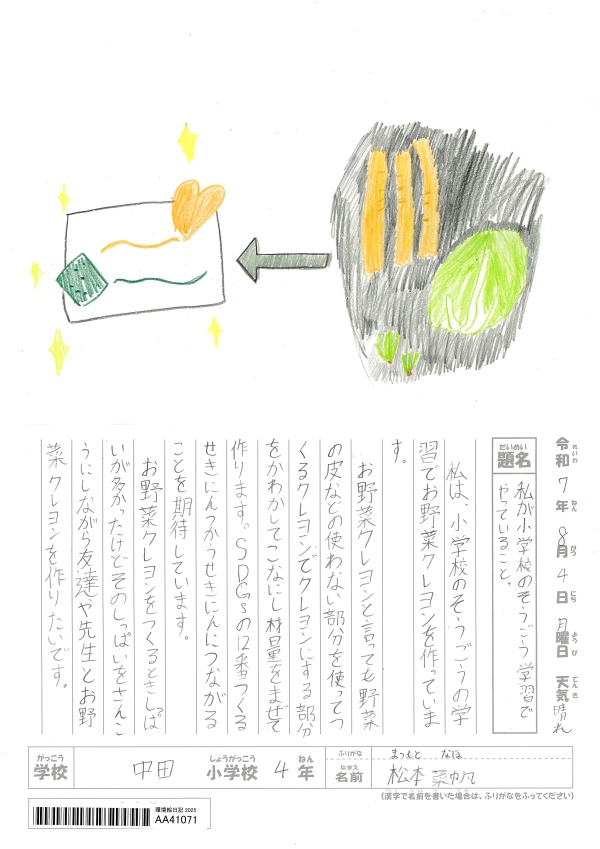 令和れいわ 7 年ねん 8 月がつ 4 日にち 月 曜日ようび 天気てんき 晴れ
題名だいめい
私が小学校のそうごう学習で
やっていること。
私は、小学校のそうごうの学
習でお野菜クレヨンを作っていま
す。
お野菜クレヨンと言っても野菜
の皮などの使わない部分を使ってつ
くるクレヨンでクレヨンにする部分
をかわかしてこなにし材量をまぜて
作ります。SDGsの12番つくる
せきにんつかうせきにんにつながる
ことを期待しています。
お野菜クレヨンをつくるときしっぱ
いが多かったけどそのしっぱいをさんこ
うにしながら友達や先生とお野
菜クレヨンを作りたいです。
学校がっこう 中田 小学校しょうがっこう 4 年ねん
ふりがな まつもと なほ
名前なまえ 松本 菜帆
(漢字で名前を書いた場合は、ふりがなをふってください)
環境絵日記 2025
AA41071